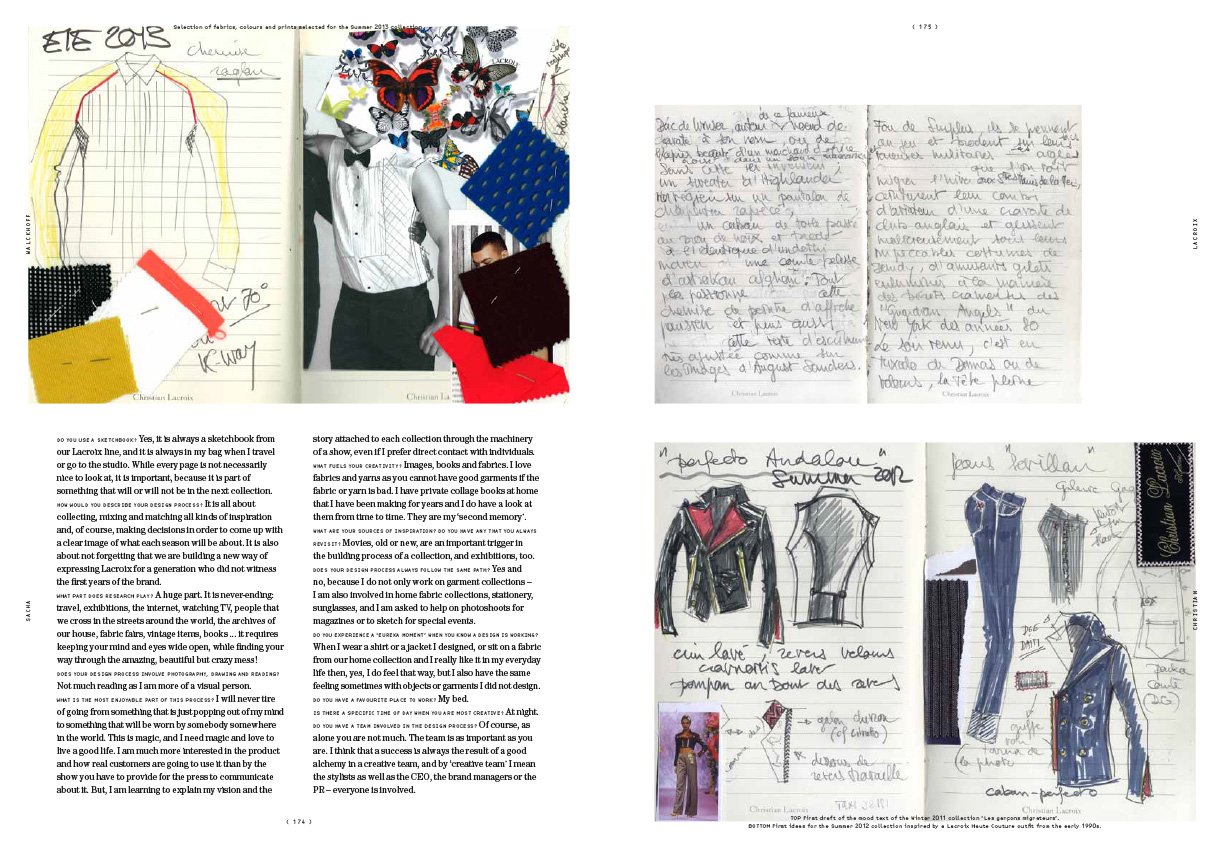 Selection of fabrics, colours and prints selected for the Summer 2013 collection.
ETE 2013
chemise
raglan
LACROIX
K-WAY
Christian Lacroix
Christian La
WALCKHOFF
SACHA
DO YOU USE A SKETCHBOOK? Yes, it is always a sketchbook from
our Lacroix line, and it is always in my bag when I travel
or go to the studio. While every page is not necessarily
nice to look at, it is important, because it is part of
something that will or will not be in the next collection.
HOW WOULD YOU DESCRIBE YOUR DESIGN PROCESS? It is all about
collecting, mixing and matching all kinds of inspiration
and, of course, making decisions in order to come up with
a clear image of what each season will be about. It is also
about not forgetting that we are building a new way of
expressing Lacroix for a generation who did not witness
the first years of the brand.
WHAT PART DOES RESEARCH PLAY? A huge part. It is never-ending:
travel, exhibitions, the internet, watching TV, people that
we cross in the streets around the world, the archives of
our house, fabric fairs, vintage items, books ... it requires
keeping your mind and eyes wide open, while finding your
way through the amazing, beautiful but crazy mess!
DOES YOUR DESIGN PROCESS INVOLVE PHOTOGRAPHY, DRAWING AND READING?
Not much reading as I am more of a visual person.
WHAT IS THE MOST ENJOYABLE PART OF THIS PROCESS? I will never tire
of going from something that is just popping out of my mind
to something that will be worn by somebody somewhere
in the world. This is magic, and I need magic and love to
live a good life. I am much more interested in the product
and how real customers are going to use it than by the
show you have to provide for the press to communicate
about it. But, I am learning to explain my vision and the
story attached to each collection through the machinery
of a show, even if I prefer direct contact with individuals.
WHAT FUELS YOUR CREATIVITY? Images, books and fabrics. I love
fabrics and yarns as you cannot have good garments if the
fabric or yarn is bad. I have private collage books at home
that I have been making for years and I do have a look at
them from time to time. They are my ‘second memory’.
WHAT ARE YOUR SOURCES OF INSPIRATION? DO YOU HAVE ANY THAT YOU ALWAYS
REVISIT? Movies, old or new, are an important trigger in
the building process of a collection, and exhibitions, too.
DOES YOUR DESIGN PROCESS ALWAYS FOLLOW THE SAME PATH? Yes and
no, because I do not only work on garment collections –
I am also involved in home fabric collections, stationery,
sunglasses, and I am asked to help on photoshoots for
magazines or to sketch for special events.
DO YOU EXPERIENCE A ‘EUREKA MOMENT’ WHEN YOU KNOW A DESIGN IS WORKING?
When I wear a shirt or a jacket I designed, or sit on a fabric
from our home collection and I really like it in my everyday
life then, yes, I do feel that way, but I also have the same
feeling sometimes with objects or garments I did not design.
DO YOU HAVE A FAVOURITE PLACE TO WORK? My bed.
IS THERE A SPECIFIC TIME OF DAY WHEN YOU ARE MOST CREATIVE? At night.
DO YOU HAVE A TEAM INVOLVED IN THE DESIGN PROCESS? Of course, as
alone you are not much. The team is as important as you
are. I think that a success is always the result of a good
alchemy in a creative team, and by ‘creative team’ I mean
the stylists as well as the CEO, the brand managers or the
PR – everyone is involved.
( 174 )
( 175 )
un sweater d'Highlander
un pantalon de
un caban de
une courte pelisse
d'astrakan afghan.
cette
chemise de peintre d'affiche
et puis aussi
cette veste
très ajustée comme sur
les images d'August Sanders.
Christian Lacroix
Fou de Surplus, ils se prennent
au jeu et
d'une cravate de
club anglais et glissent
sous leurs
impeccables costumes de
dandy, d'amusants gilets
à la manière
des
"Guardian Angels" du
New York des années 80
Le soir venu, c'est en
Christian Lacroix
LACROIX
CHRISTIAN
"perfecto Andalou"
Summer 2012
cuir lavé revers velours
pompon au bout des revers
dessous de
revers
Christian Lacroix
Jeans "Sevillan"
Christian Lacroix
(la photo
caban-perfecto
Christian Lacroix
TOP First draft of the mood text of the Winter 2011 collection ‘Les garçons migrateurs’.
BOTTOM First ideas for the Summer 2012 collection inspired by a Lacroix Haute Couture outfit from the early 1990s.